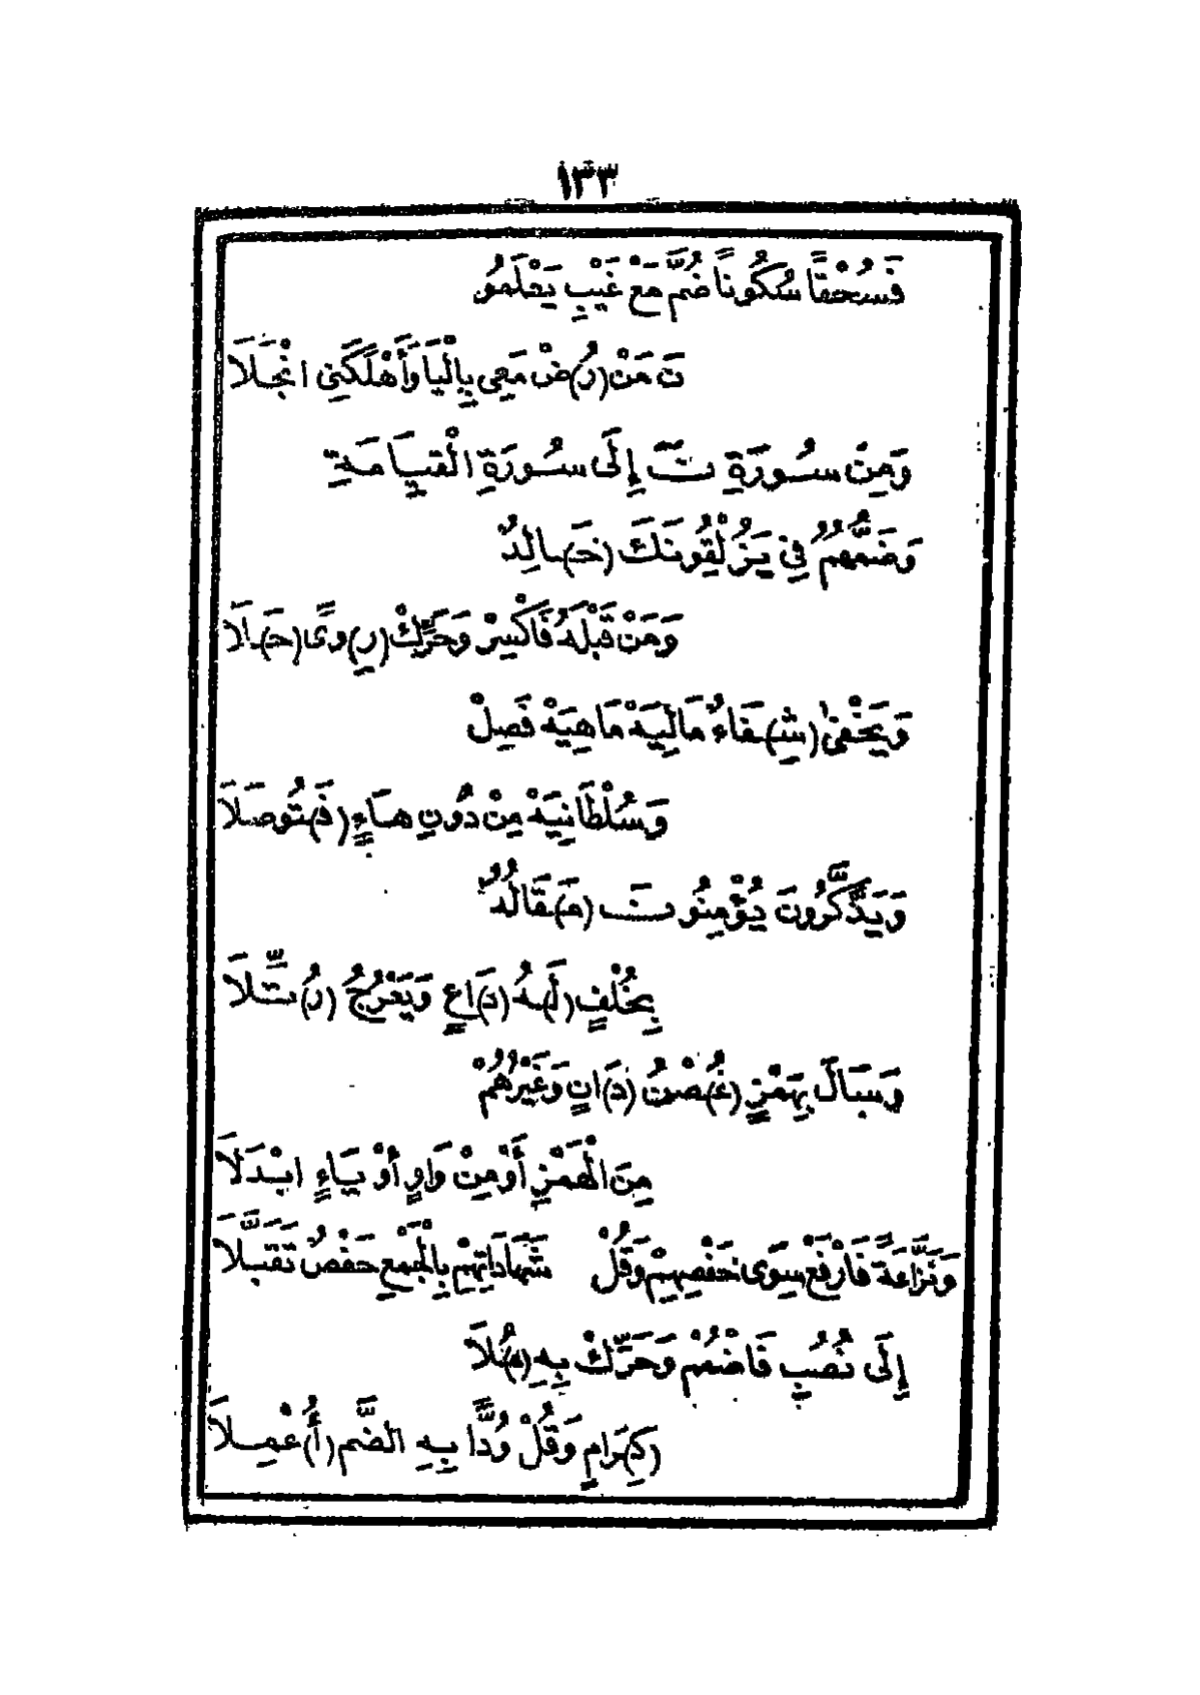 ١٣٣
فَسُحْقًا سُكُونًا ضُمَّ مَعْ غَيْبِ يَعْلَمُو
نَ مَنْ (رُ)ضْ مَعِي بِالْيَا وَأَهْلَكَنِي انْجَلَا
وَمِنْ سُورَةِ نَ إِلَى سُورَةِ الْقِيَامَةِ
وَضَمُّهُمُ فِي يَزْلِقُونَكَ (خَـ)ـالِدٌ
وَمَنْ قَبْلَهُ فَاكْسِرْ وَحَرِّكْ (رِ)وًى (حَـ)ـلَا
وَيَخْفَى (شِـ)ـفَاءٌ مَالِيَهْ مَاهِيَهْ فَصِلْ
وَسُلْطَانِيَهْ مِنْ دُونِ هَاءٍ (فَـ)ـتُوصَلَا
وَيَذَّكَّرُونَ يُؤْمِنُونَ (مَـ)ـقَالُهُ
بِخُلْفٍ (لَـ)ـهُ (دَ)اعٍ وَيَعْرُجُ (رُ)تِّلَا
وَسَالَ بِهَمْزٍ (غُـ)ـصْنُ (دَ)انٍ وَغَيْرُهُمْ
مِنَ الْهَمْزِ أَوْ مِنْ وَاوٍ أَوْ يَاءٍ ابْدَلَا
وَنَزَّاعَةً فَارْفَعْ سِوَى حَفْصِهِمْ وَقُلْ شَهَادَاتِهِمْ بِالْجَمْعِ حَفْصٌ تَقَبَّلَا
إِلَى نُصُبٍ فَاضْمُمْ وَحَرِّكْ بِهِ (عُـ)ـلَا
(كِـ)ـرَامٍ وَقُلْ وُدًّا بِهِ الضَّمُّ (أُ)عْمِلَا